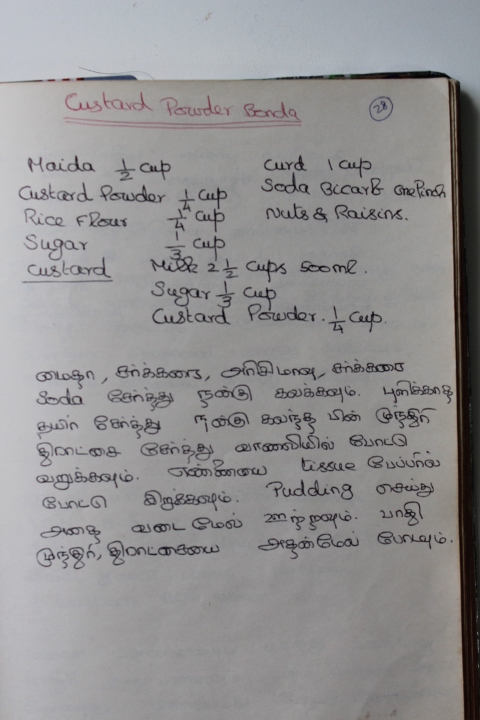 Custard Powder Bonda
28
Maida 1/2 cup
Custard Powder 1/4 cup
Rice Flour 1/4 cup
Sugar 1/3 cup
Curd 1 cup
Soda Bicarb one Pinch
Nuts & Raisins.
Custard Milk 2 1/2 cups 500ml.
Sugar 1/3 cup
Custard Powder. 1/4 cup.
மைதா, சர்க்கரை, அரிசிமாவு, சர்க்கரை
Soda சேர்த்து நன்கு கலக்கவும். புளிக்காத
தயிர் சேர்த்து நன்கு கலந்த பின் முந்திரி
திராட்சை சேர்த்து வாணலியில் போட்டு
வறுக்கவும். எண்ணையை tissue பேப்பரில்
போட்டு இறக்கவும். Pudding செய்து
அதை வடை மேல் ஊற்றவும். பாக்கி
முந்திரி, திராட்சையை அதன்மேல் போடவும்.